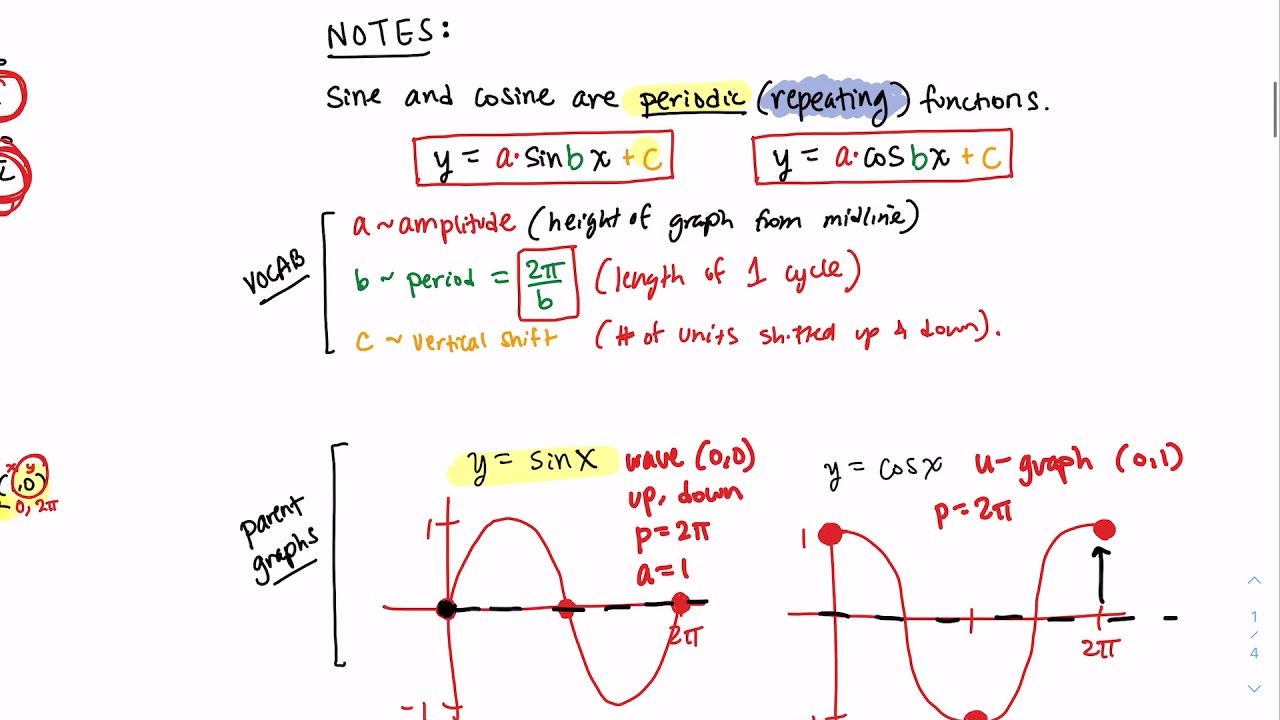 NOTES:
Sine and cosine are periodic (repeating) functions.
y = a·sinbx + c
y = a·cosbx + c
VOCAB
a ~ amplitude (height of graph from midline)
b ~ period = 2π/b (length of 1 cycle)
c ~ vertical shift (# of units shifted up & down).
x y
,0)
0, 2π
parent
graphs
y = sinx
wave (0,0)
up, down
p = 2π
a = 1
1
2π
-1
y = cosx
u-graph (0,1)
p = 2π
1
2π
1
/
4